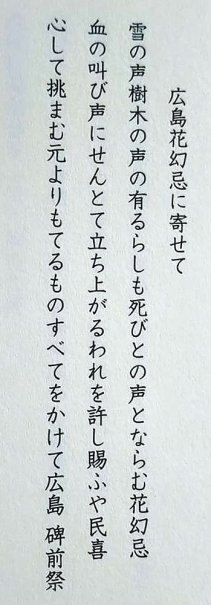 広島花幻忌に寄せて
雪の声樹木の声の有るらしも死びとの声とならむ花幻忌
血の叫び声にせんとて立ち上がるわれを許し賜ふや民喜
心して挑まむ元よりもてるものすべてをかけて広島 碑前祭